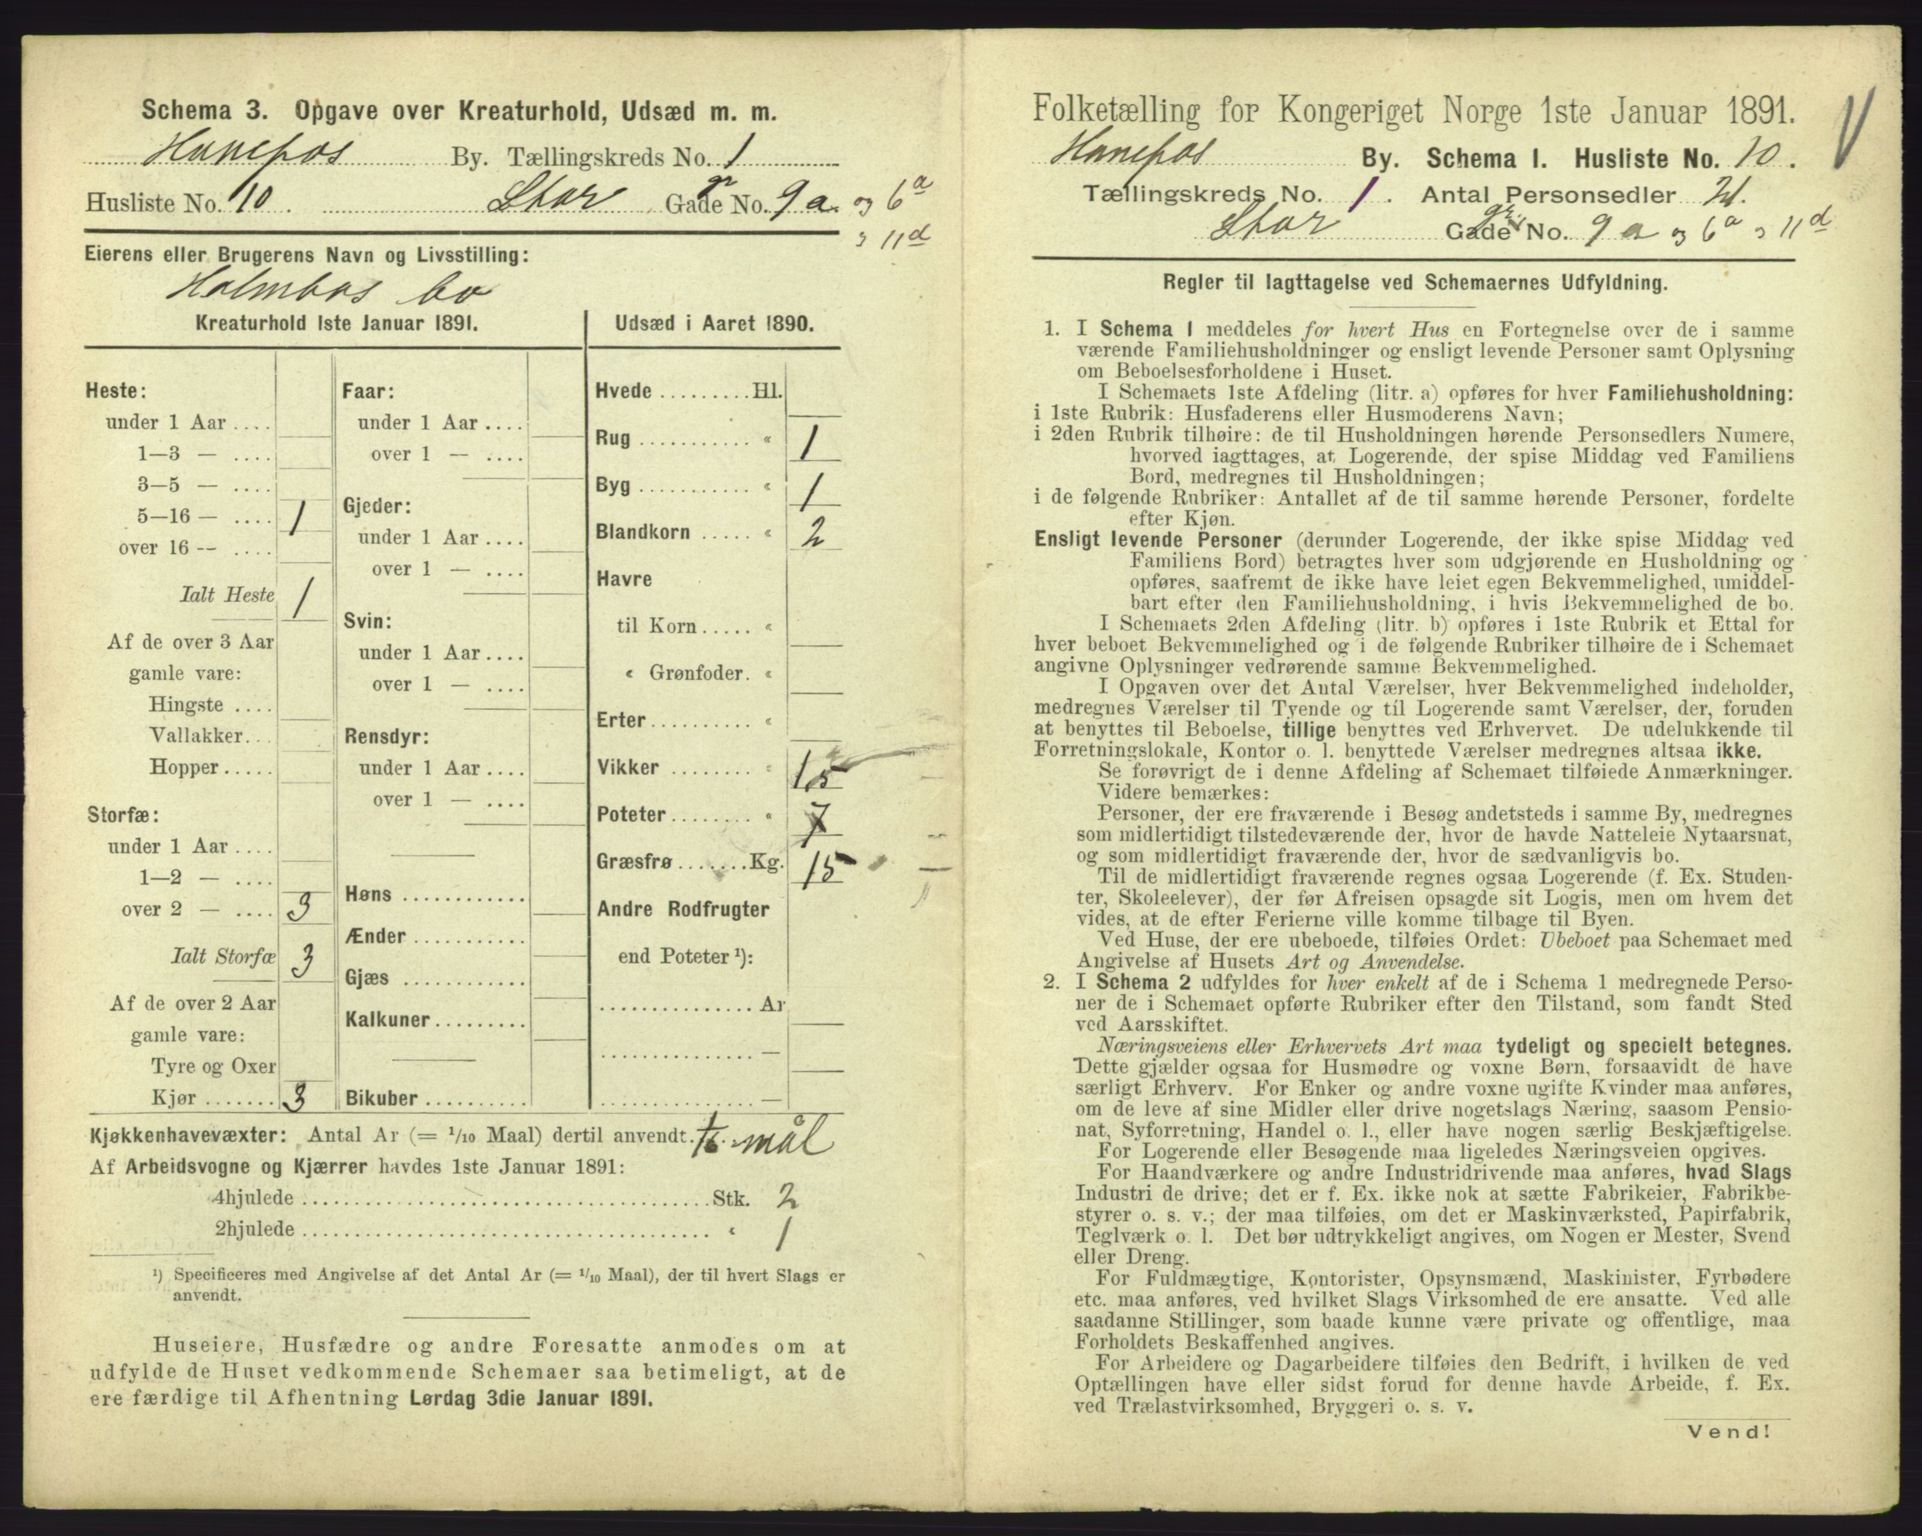 Schema 3. Opgave over Kreaturhold, Udsæd m. m.
Honefos By. Tællingskreds No. 1
Husliste No. 10. Stor Gade No. 9 a. og 6 a
" 11 d
Eierens eller Brugerens Navn og Livsstilling:
Holmbos bo
Kreaturhold 1ste Januar 1891.
Heste:
under 1 Aar ....
1—3 — ....
3—5 — ....
5—16 — .... 1
over 16 — ....
Ialt Heste 1
Af de over 3 Aar
gamle vare:
Hingste ....
Vallakker...
Hopper.....
Storfæ:
under 1 Aar ....
1—2 — ....
over 2 — .... 3
Ialt Storfæ 3
Af de over 2 Aar
gamle vare:
Tyre og Oxer
Kjør ....... 3
Faar:
under 1 Aar ....
over 1 — ....
Gjeder:
under 1 Aar ....
over 1 — ....
Svin:
under 1 Aar ....
over 1 — ....
Rensdyr:
under 1 Aar ....
over 1 — ....
Høns ............
Ænder ...........
Gjæs ............
Kalkuner.........
Bikuber ..........
Udsæd i Aaret 1890.
Hvede .........Hl.
Rug ........... " 1
Byg ........... " 1
Blandkorn ..... " 2
Havre
til Korn ..... "
" Grønfoder. "
Erter ......... "
Vikker ........ " 1,5
Poteter ........ " 7
Græsfrø .......Kg. 15
Andre Rodfrugter
end Poteter ¹):
............... Ar
............... —
............... —
Kjøkkenhavevæxter: Antal Ar (= 1/10 Maal) dertil anvendt. mål
Af Arbeidsvogne og Kjærrer havdes 1ste Januar 1891:
4hjulede ........................................Stk. 2
2hjulede ........................................ " 1
¹) Specificeres med Angivelse af det Antal Ar (= 1/10 Maal), der til hvert Slags er
anvendt.
Huseiere, Husfædre og andre Foresatte anmodes om at
udfylde de Huset vedkommende Schemaer saa betimeligt, at de
ere færdige til Afhentning Lørdag 3die Januar 1891.
Folketælling for Kongeriget Norge 1ste Januar 1891.
Honefos By. Schema I. Husliste No. 10.
Tællingskreds No. 1. Antal Personsedler 21.
Stor Gade No. 9 a og 6 a " 11 d
Regler til Iagttagelse ved Schemaernes Udfyldning.
1. I Schema 1 meddeles for hvert Hus en Fortegnelse over de i samme
værende Familiehusholdninger og ensligt levende Personer samt Oplysning
om Beboelsesforholdene i Huset.
I Schemaets 1ste Afdeling (litr. a) opføres for hver Familiehusholdning:
i 1ste Rubrik: Husfaderens eller Husmoderens Navn;
i 2den Rubrik tilhøire: de til Husholdningen hørende Personsedlers Numere,
hvorved iagttages, at Logerende, der spise Middag ved Familiens
Bord, medregnes til Husholdningen;
i de følgende Rubriker: Antallet af de til samme hørende Personer, fordelte
efter Kjøn.
Ensligt levende Personer (derunder Logerende, der ikke spise Middag ved
Familiens Bord) betragtes hver som udgjørende en Husholdning og
opføres, saafremt de ikke have leiet egen Bekvemmelighed, umiddel-
bart efter den Familiehusholdning, i hvis Bekvemmelighed de bo.
I Schemaets 2den Afdeling (litr. b) opføres i 1ste Rubrik et Ettal for
hver beboet Bekvemmelighed og i de følgende Rubriker tilhøire de i Schemaet
angivne Oplysninger vedrørende samme Bekvemmelighed.
I Opgaven over det Antal Værelser, hver Bekvemmelighed indeholder,
medregnes Værelser til Tyende og til Logerende samt Værelser, der, foruden
at benyttes til Beboelse, tillige benyttes ved Erhvervet. De udelukkende til
Forretningslokale, Kontor o. l. benyttede Værelser medregnes altsaa ikke.
Se forøvrigt de i denne Afdeling af Schemaet tilføiede Anmærkninger.
Videre bemærkes:
Personer, der ere fraværende i Besøg andetsteds i samme By, medregnes
som midlertidigt tilstedeværende der, hvor de havde Natteleie Nytaarsnat,
og som midlertidigt fraværende der, hvor de sædvanligvis bo.
Til de midlertidigt fraværende regnes ogsaa Logerende (f. Ex. Studen-
ter, Skoleelever), der før Afreisen opsagde sit Logis, men om hvem det
vides, at de efter Ferierne ville komme tilbage til Byen.
Ved Huse, der ere ubeboede, tilføies Ordet: Ubeboet paa Schemaet med
Angivelse af Husets Art og Anvendelse.
2. I Schema 2 udfyldes for hver enkelt af de i Schema 1 medregnede Perso-
ner de i Schemaet opførte Rubriker efter den Tilstand, som fandt Sted
ved Aarsskiftet.
Næringsveiens eller Erhvervets Art maa tydeligt og specielt betegnes.
Dette gjælder ogsaa for Husmødre og voxne Børn, forsaavidt de have
særligt Erhverv. For Enker og andre voxne ugifte Kvinder maa anføres,
om de leve af sine Midler eller drive nogetslags Næring, saasom Pensio-
nat, Syforretning, Handel o. l., eller have nogen særlig Beskjæftigelse.
For Logerende eller Besøgende maa ligeledes Næringsveien opgives.
For Haandværkere og andre Industridrivende maa anføres, hvad Slags
Industri de drive; det er f. Ex. ikke nok at sætte Fabrikeier, Fabrikbe-
styrer o. s. v.; der maa tilføies, om det er Maskinværksted, Papirfabrik,
Teglværk o. l. Det bør udtrykkeligt angives, om Nogen er Mester, Svend
eller Dreng.
For Fuldmægtige, Kontorister, Opsynsmænd, Maskinister, Fyrbødere
etc. maa anføres, ved hvilket Slags Virksomhed de ere ansatte. Ved alle
saadanne Stillinger, som baade kunne være private og offentlige, maa
Forholdets Beskaffenhed angives.
For Arbeidere og Dagarbeidere tilføies den Bedrift, i hvilken de ved
Optællingen have eller sidst forud for denne havde Arbeide, f. Ex.
ved Trælastvirksomhed, Bryggeri o. s. v.
Vend!